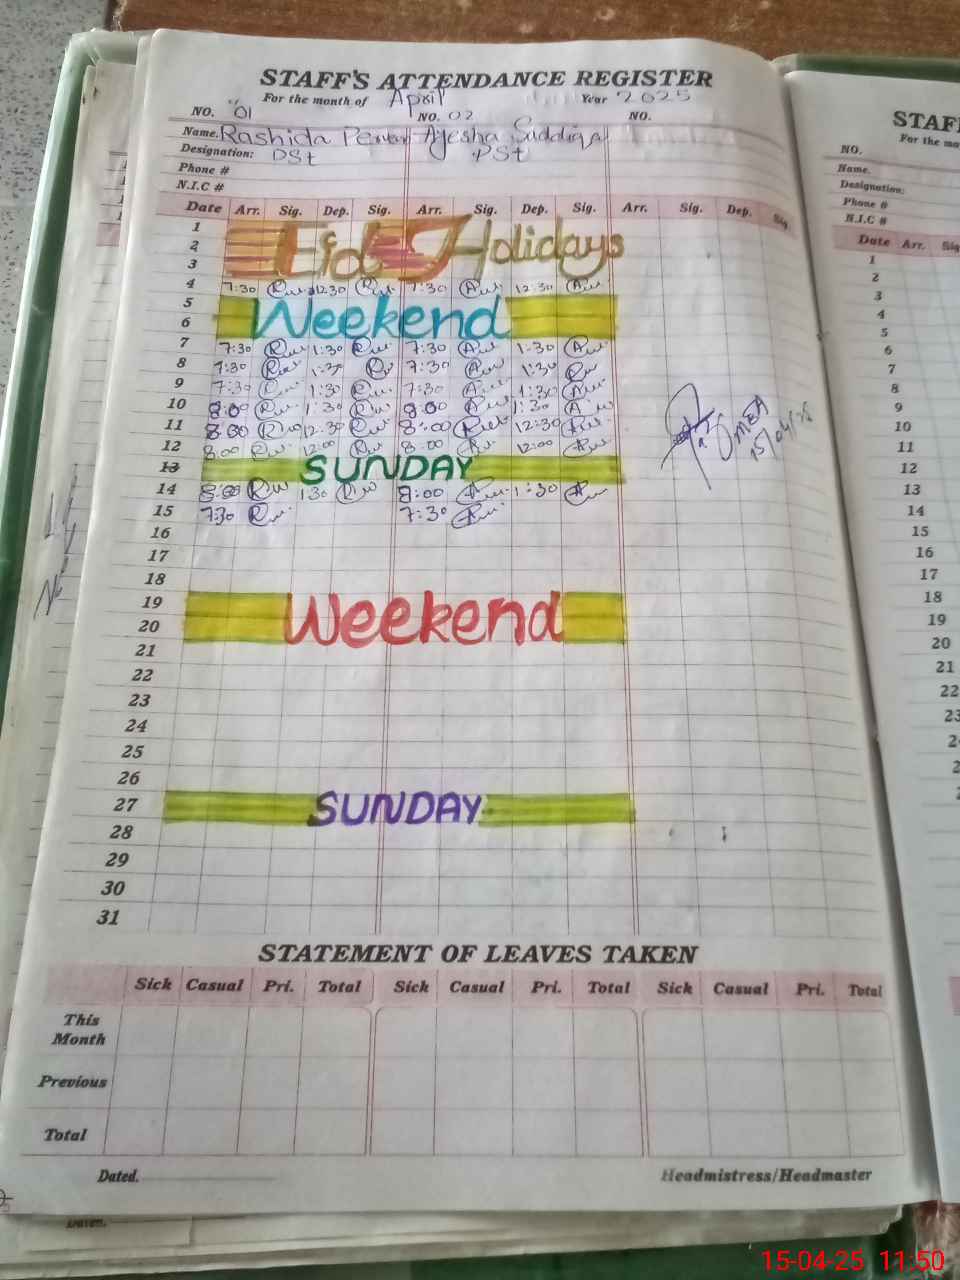 STAFF'S ATTENDANCE REGISTER
For the month of April Year 2025
NO. 01 NO. 02 NO.
Name. Rashida Ayesha Siddiqa
Designation: PSt PSt
Phone #
N.I.C #
Date Arr. Sig. Dep. Sig. Arr. Sig. Dep. Sig. Arr. Sig. Dep. Sig
1
2 Eid Holidays
3
4 7:30 12:30 7:30 12:30
5 Weekend
6
7 7:30 1:30 7:30 1:30
8 7:30 1:30 7:30 1:30
9 7:30 1:30 7:30 1:30
10 8:00 1:30 8:00 1:30
11 8:00 12:30 8:00 12:30
12 8:00 12:00 8:00 12:00
13 SUNDAY
14 8:00 1:30 8:00 1:30
15 7:30 7:30
16
17
18
19 Weekend
20
21
22
23
24
25
26
27 SUNDAY
28
29
30
31
MEA
15/04/25
STATEMENT OF LEAVES TAKEN
Sick Casual Pri. Total Sick Casual Pri. Total Sick Casual Pri. Total
This Month
Previous
Total
Dated. Headmistress/Headmaster
STAF
For the mo
NO.
Name.
Designation:
Phone #
N.I.C #
Date Arr. Sig
1
2
3
4
5
6
7
8
9
10
11
12
13
14
15
16
17
18
19
20
21
22
23
15-04-25 11:50